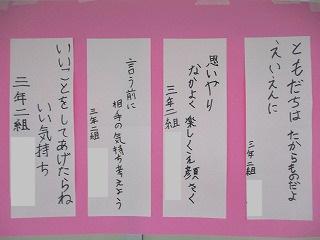 ともだちは たからものだよ
えいえんに
三年二組
思いやり
なかよく 楽しくえ顔さく
三年二組
言う前に
相手の気持ち考えよう
三年二組
いいことを してあげたらね
いい気持ち
三年二組